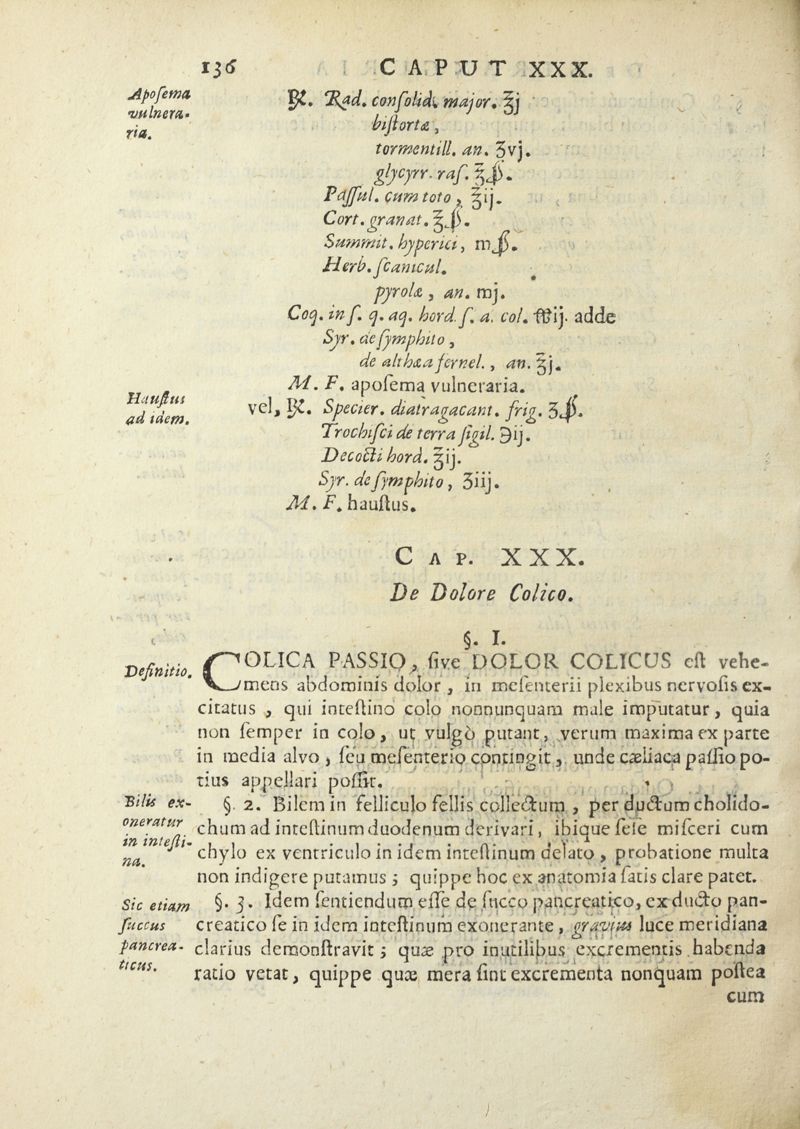 136 CAPUT XXX.
Aposema
vulnera-
ria.
℞. Rad. consolid. major. ℥j
bistortæ,
tormentill. an. ʒvj.
glycyrr. ras. ℥ß.
Passul. cum toto, ℥ij.
Cort. granat. ℥ß.
Summit. hyperici, mß.
Herb. sanicul.
pyrolæ, an. mj.
Coq. in s. q. aq. hord. s. a. col. ℔ij. adde
Syr. de symphito,
de althæa fernel., an. ℥j.
M. F. aposema vulneraria.
Haustus
ad idem.
vel, ℞. Specier. diatragacant. frig. ʒß.
Trochisci de terra sigil. ℈ij.
Decocti hord. ℥ij.
Syr. de symphito, ʒiij.
M. F. haustus.
CAP. XXX.
De Dolore Colico.
§. I.
Definitio.
COLICA PASSIO, sive DOLOR COLICUS est vehe-
mens abdominis dolor, in mesenterii plexibus nervosis ex-
citatus, qui intestino colo nonnunquam male imputatur, quia
non semper in colo, ut vulgò putant, verum maxima ex parte
in media alvo, seu mesenterio contingit, unde cæliaca passio po-
tius appellari possit.
Bilis ex-
oneratur
in intesti-
na.
§. 2. Bilem in felliculo fellis collectum, per ductum cholido-
chum ad intestinum duodenum derivari, ibique sese misceri cum
chylo ex ventriculo in idem intestinum delato, probatione multa
non indigere putamus; quippe hoc ex anatomia satis clare patet.
Sic etiam
succus
pancrea-
ticus.
§. 3. Idem sentiendum esse de succo pancreatico, ex ductu pan-
creatico se in idem intestinum exonerante, gravius luce meridiana
clarius demonstravit; quæ pro inutilibus excrementis habenda
ratio vetat, quippe quæ mera sint excrementa nonquam postea
cum